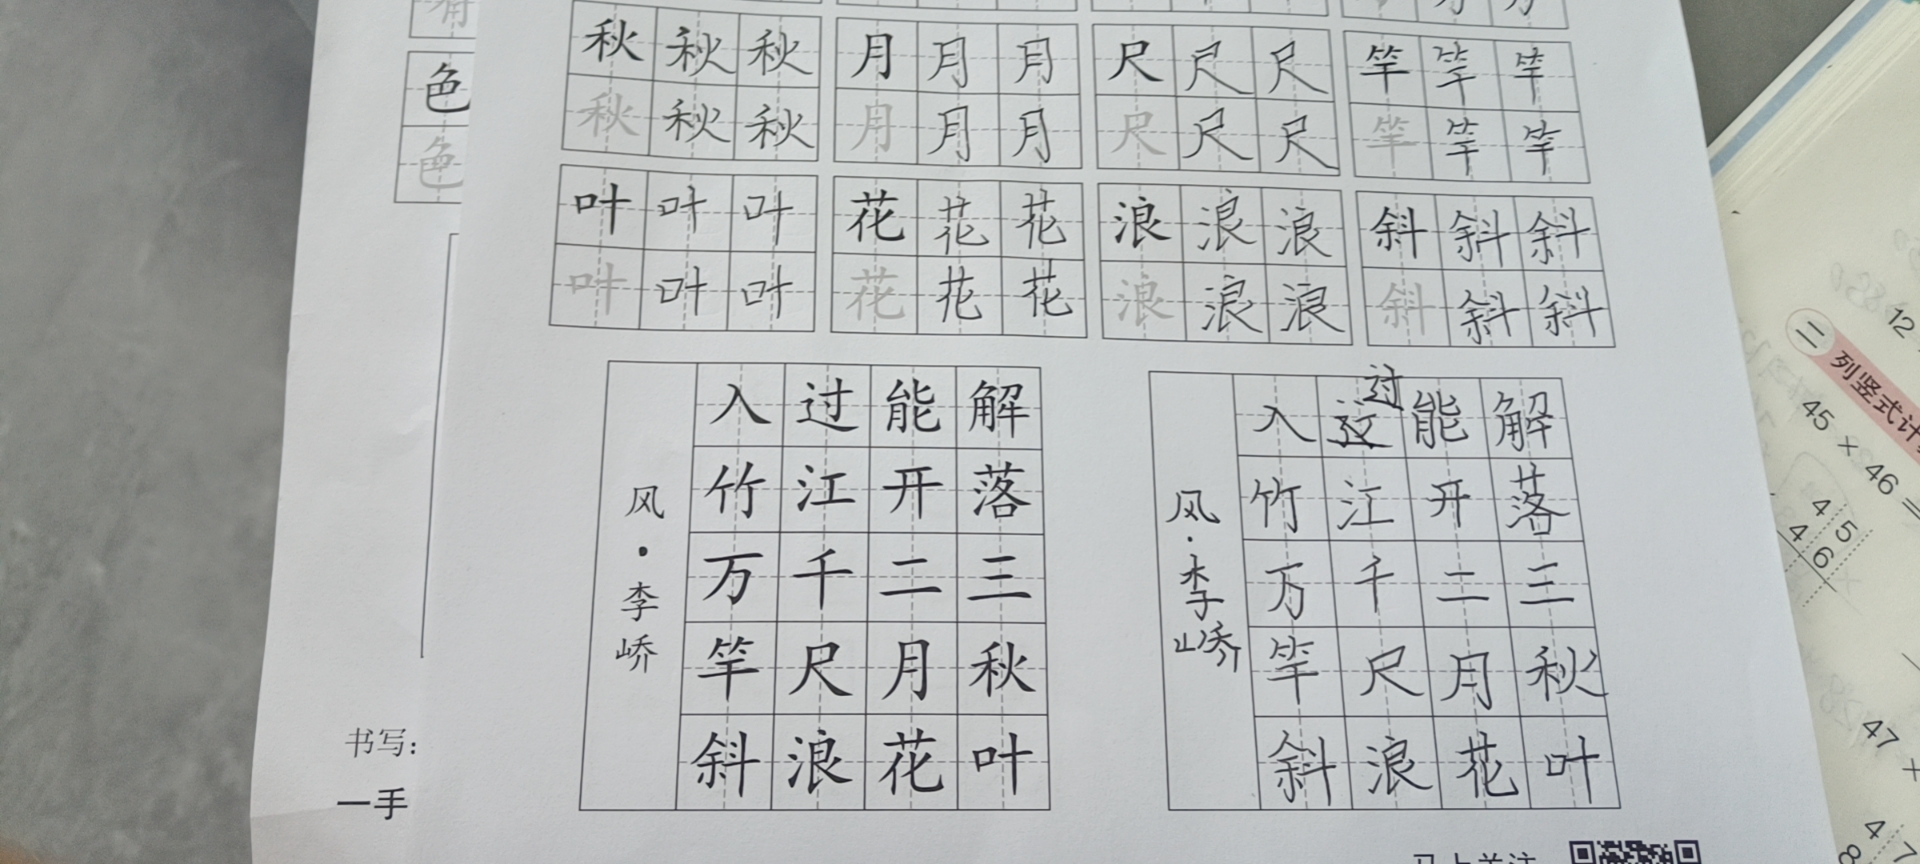 色
色
秋 秋 秋 月 月 月 尺 尺 尺 竿 竿 竿
秋 秋 秋 月 月 月 尺 尺 尺 竿 竿 竿
叶 叶 叶 花 花 花 浪 浪 浪 斜 斜 斜
叶 叶 叶 花 花 花 浪 浪 浪 斜 斜 斜
风·李峤
入过能解
竹江开落
万千二三
竿尺月秋
斜浪花叶
风·李峤
过
入 能解
竹江开落
万千二三
竿尺月秋
斜浪花叶
书写:
一手
马上关注
12
二 列竖式计
45 + 46 =
45
46
47 +
47
8